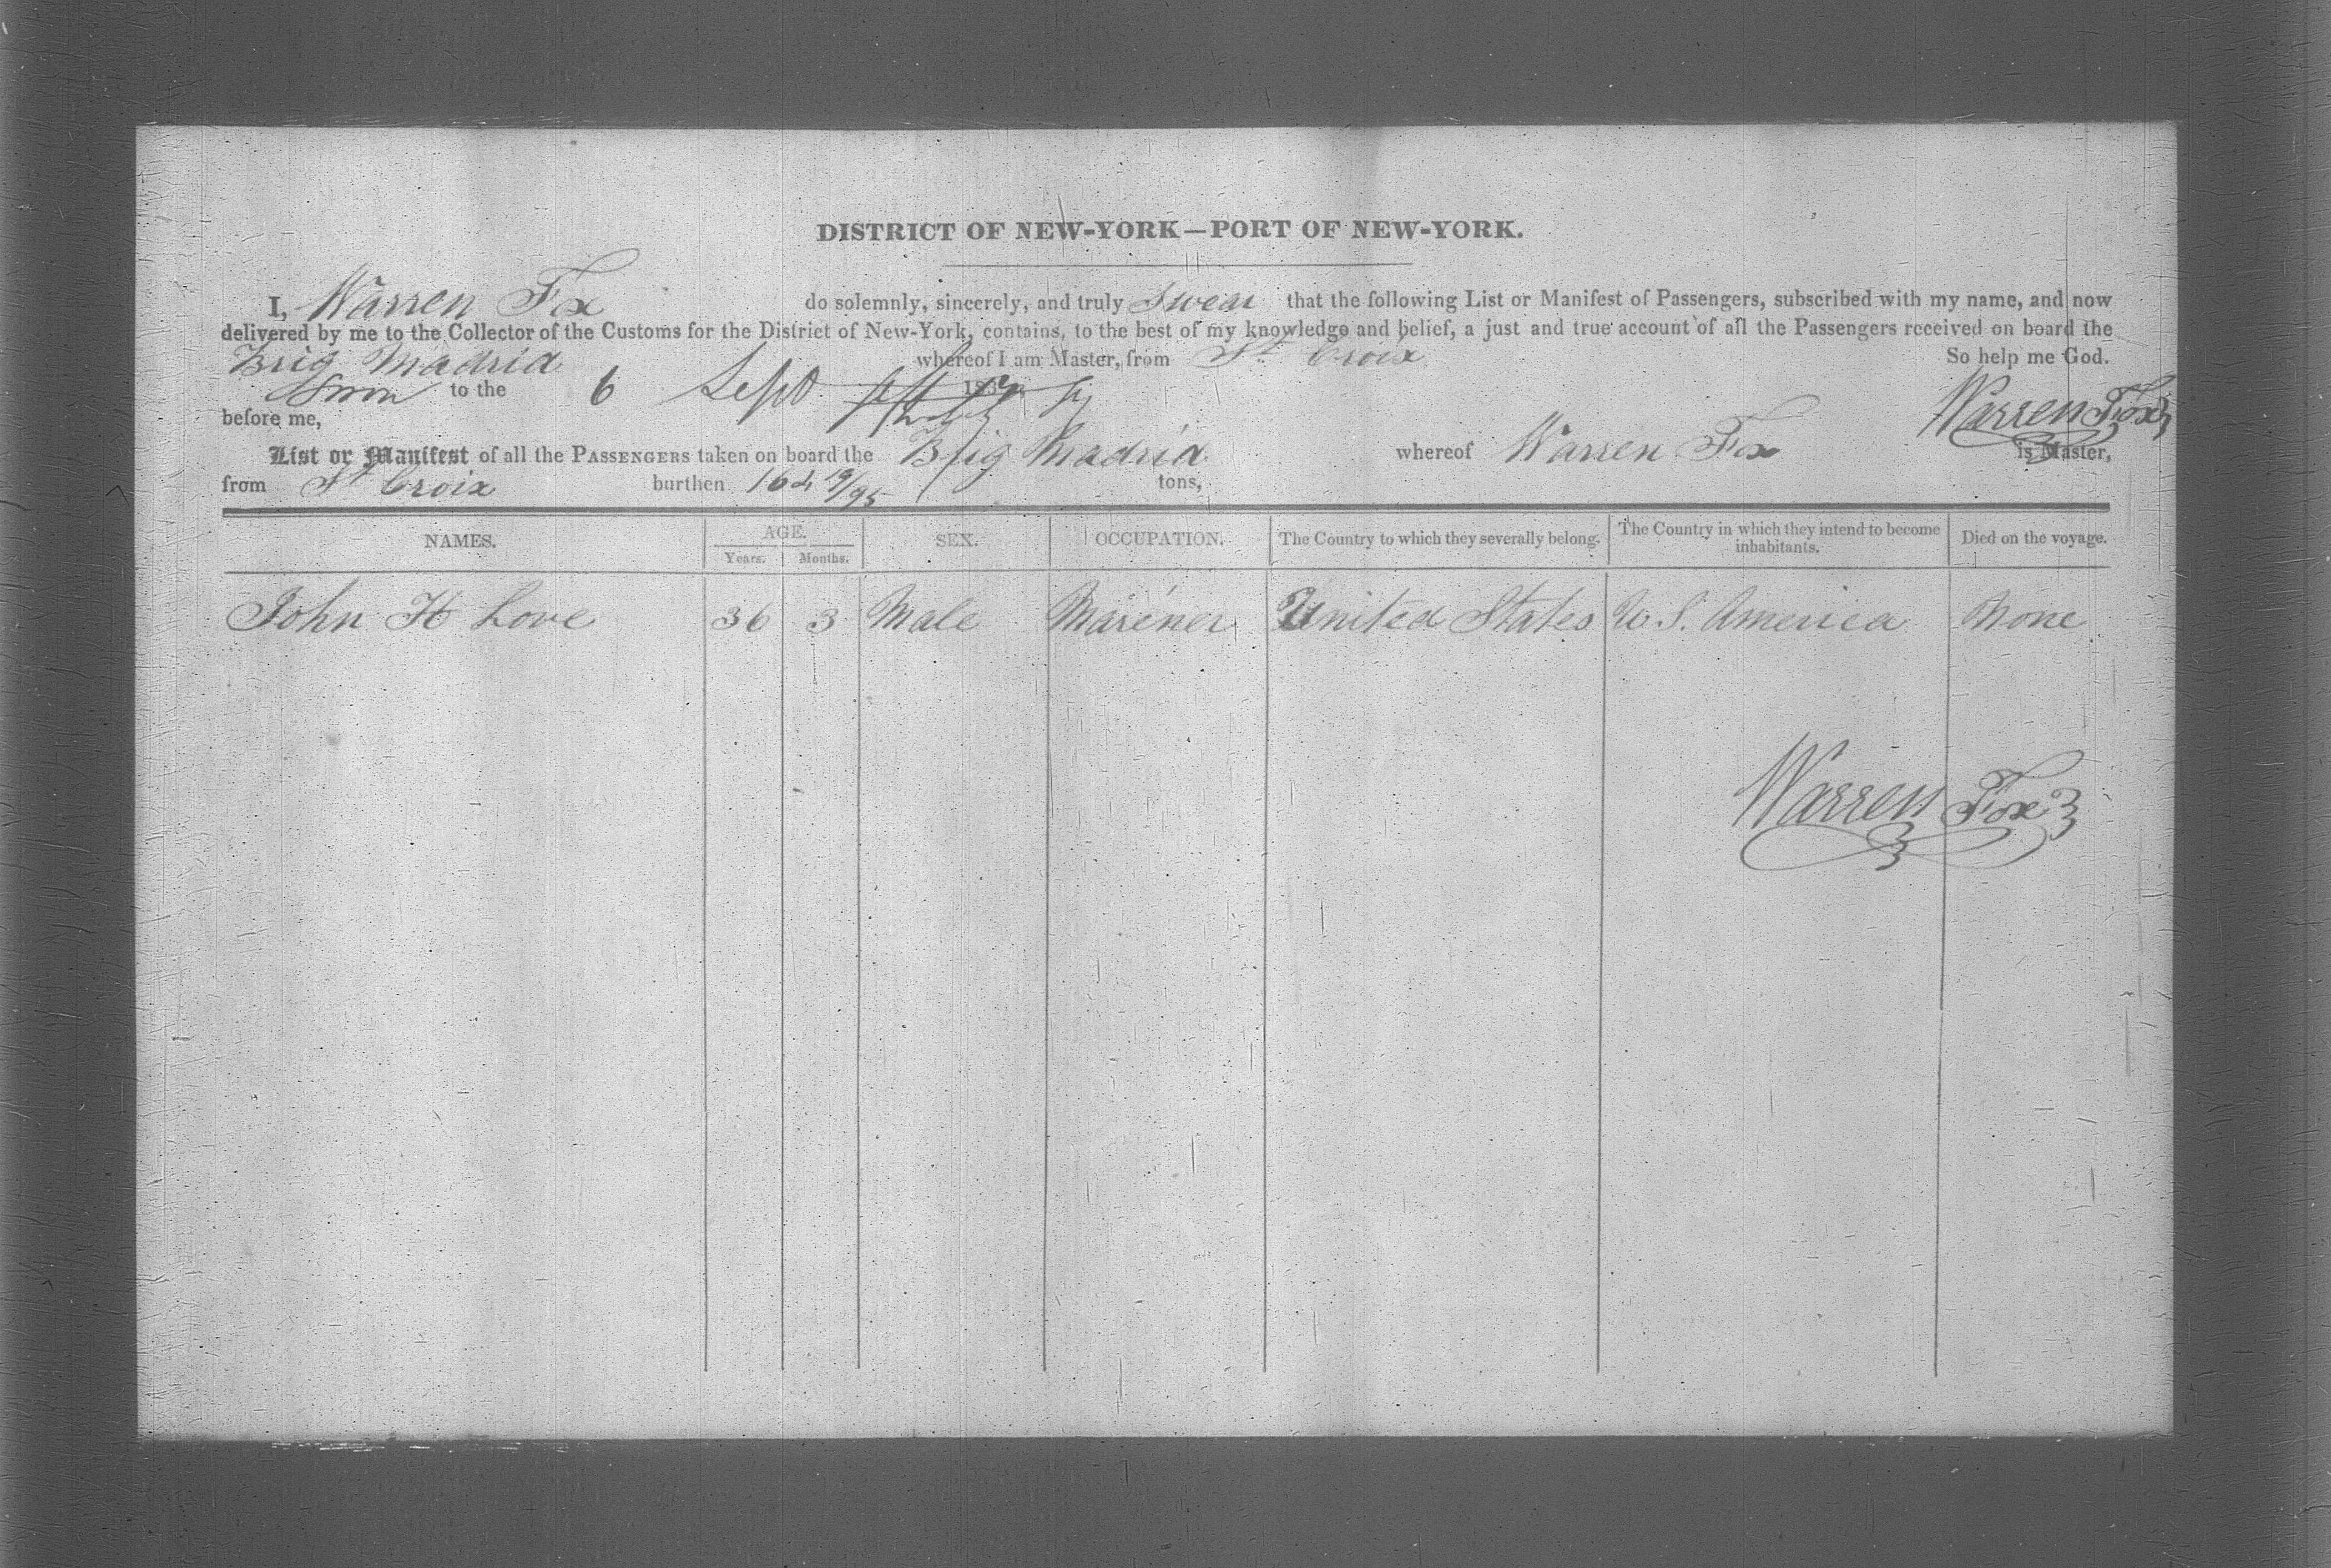 DISTRICT OF NEW-YORK—PORT OF NEW-YORK.
I, Warren Fox do solemnly, sincerely, and truly Swear that the following List or Manifest of Passengers, subscribed with my name, and now
delivered by me to the Collector of the Customs for the District of New-York, contains, to the best of my knowledge and belief, a just and true account of all the Passengers received on board the
Brig Madrid whereof I am Master, from St Croix So help me God.
Sworn to the 6 Sept
before me, Warren Fox
List or Manifest of all the PASSENGERS taken on board the Brig Madrid whereof Warren Fox is Master,
from St Croix burthen tons,
NAMES. AGE. SEX. OCCUPATION. The Country to which they severally belong. The Country in which they intend to become inhabitants. Died on the voyage.
Years. Months.
John H Love 36 3 Male Mariner United States U S. America None
Warren Fox